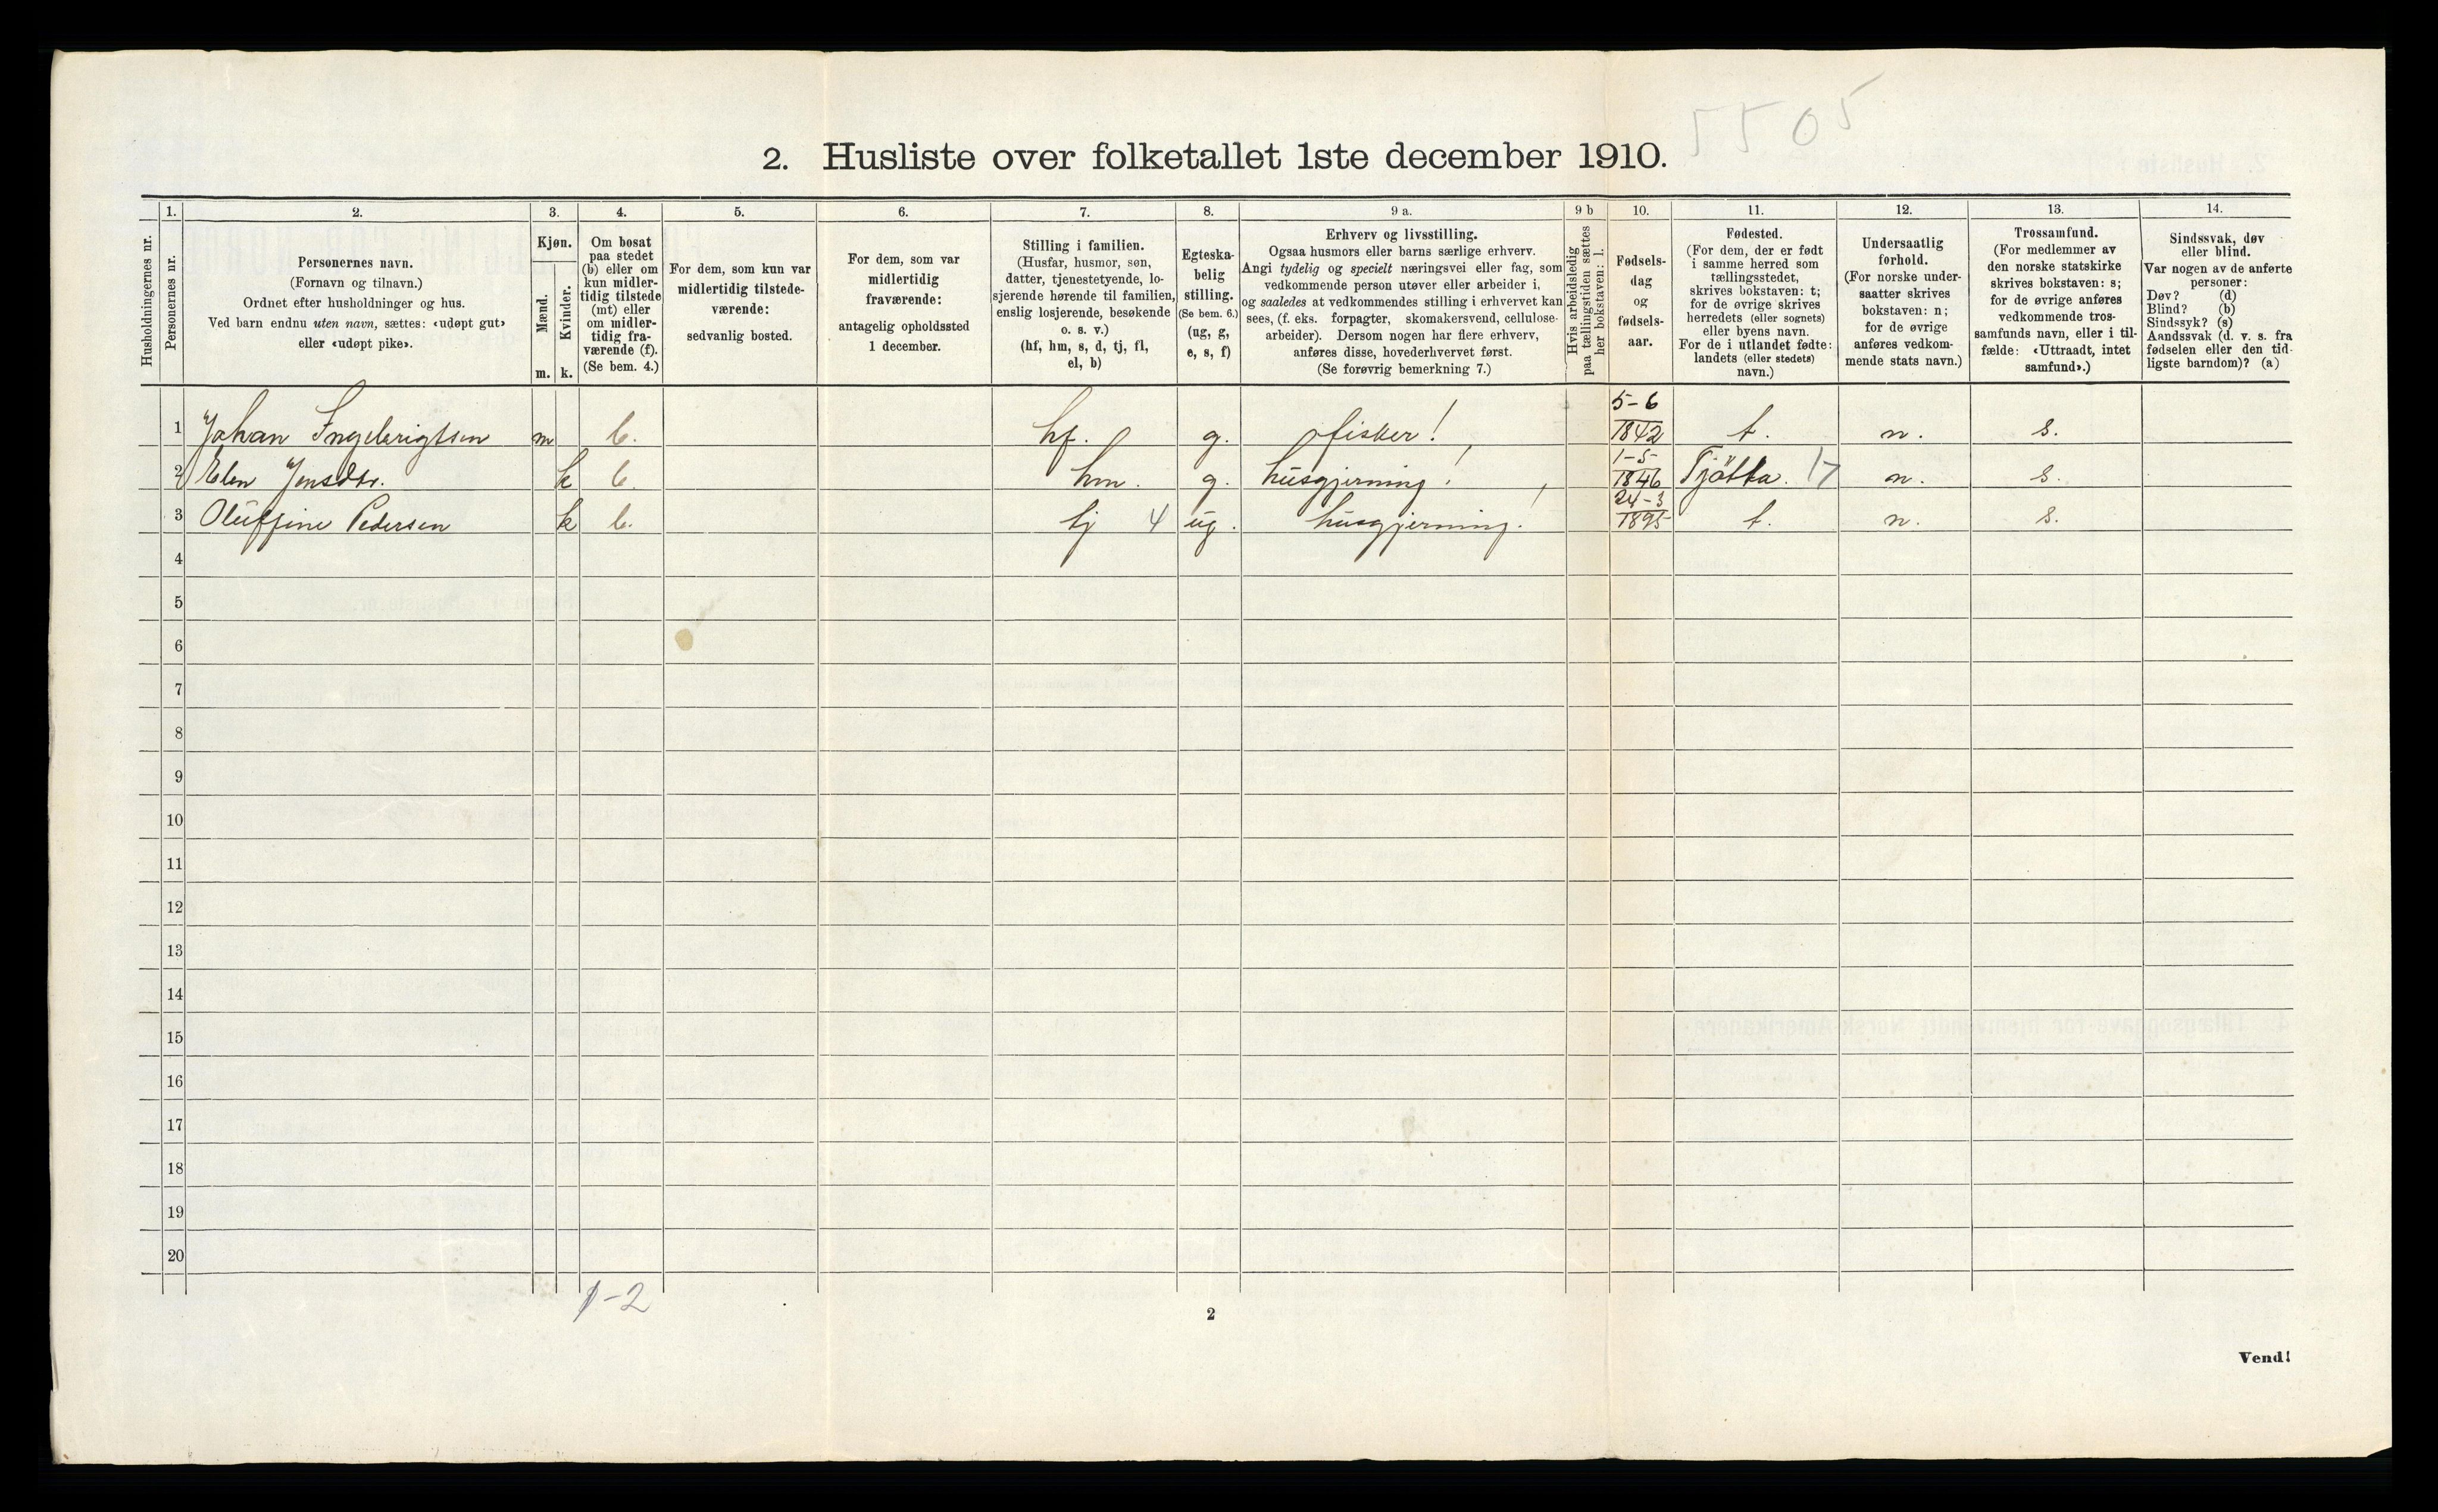 5505
2. Husliste over folketallet 1ste december 1910.
Husholdningernes nr.
1.
Personernes nr.
2.
Personernes navn.
(Fornavn og tilnavn.)
Ordnet efter husholdninger og hus.
Ved barn endnu uten navn, sættes: «udøpt gut»
eller «udøpt pike».
3.
Kjøn.
Mænd.
Kvinder.
m. k.
4.
Om bosat
paa stedet
(b) eller om
kun midler-
tidig tilstede
(mt) eller
om midler-
tidig fra-
værende (f).
(Se bem. 4.)
5.
For dem, som kun var
midlertidig tilstede-
værende:
sedvanlig bosted.
6.
For dem, som var
midlertidig
fraværende:
antagelig opholdssted
1 december.
7.
Stilling i familien.
(Husfar, husmor, søn,
datter, tjenestetyende, lo-
sjerende hørende til familien,
enslig losjerende, besøkende
o. s. v.)
(hf, hm, s, d, tj, fl,
el, b)
8.
Egteska-
belig
stilling.
(Se bem. 6.)
(ug, g,
e, s, f)
9 a.
Erhverv og livsstilling.
Ogsaa husmors eller barns særlige erhverv.
Angi tydelig og specielt næringsvei eller fag, som
vedkommende person utøver eller arbeider i,
og saaledes at vedkommendes stilling i erhvervet kan
sees, (f. eks. forpagter, skomakersvend, cellulose-
arbeider). Dersom nogen har flere erhverv,
anføres disse, hovederhvervet først.
(Se forøvrig bemerkning 7.)
9 b
Hvis arbeidsledig
paa tællingstiden sættes
her bokstaven: l.
10.
Fødsels-
dag
og
fødsels-
aar.
11.
Fødested.
(For dem, der er født
i samme herred som
tællingsstedet,
skrives bokstaven: t;
for de øvrige skrives
herredets (eller sognets)
eller byens navn.
For de i utlandet fødte:
landets (eller stedets)
navn.)
12.
Undersaatlig
forhold.
(For norske under-
saatter skrives
bokstaven: n;
for de øvrige
anføres vedkom-
mende stats navn.)
13.
Trossamfund.
(For medlemmer av
den norske statskirke
skrives bokstaven: s;
for de øvrige anføres
vedkommende tros-
samfunds navn, eller i til-
fælde: «Uttraadt, intet
samfund».)
14.
Sindssvak, døv
eller blind.
Var nogen av de anførte
personer:
Døv? (d)
Blind? (b)
Sindssyk? (s)
Aandssvak (d. v. s. fra
fødselen eller den tid-
ligste barndom)? (a)
1 Johan Ingebrigtsen m b. hf. g. fisker! 5-6 1842 t. n. s.
2 Elen Jensdtr. k b. hm. g. husgjerning! 1-5 1846 Tjøtta. 17 n. s.
3 Oluffine Pedersen k b. tj 4 ug. husgjerning! 24-3 1895 t. n. s.
4
5
6
7
8
9
10
11
12
13
14
15
16
17
18
19
20
1-2
2
Vend!